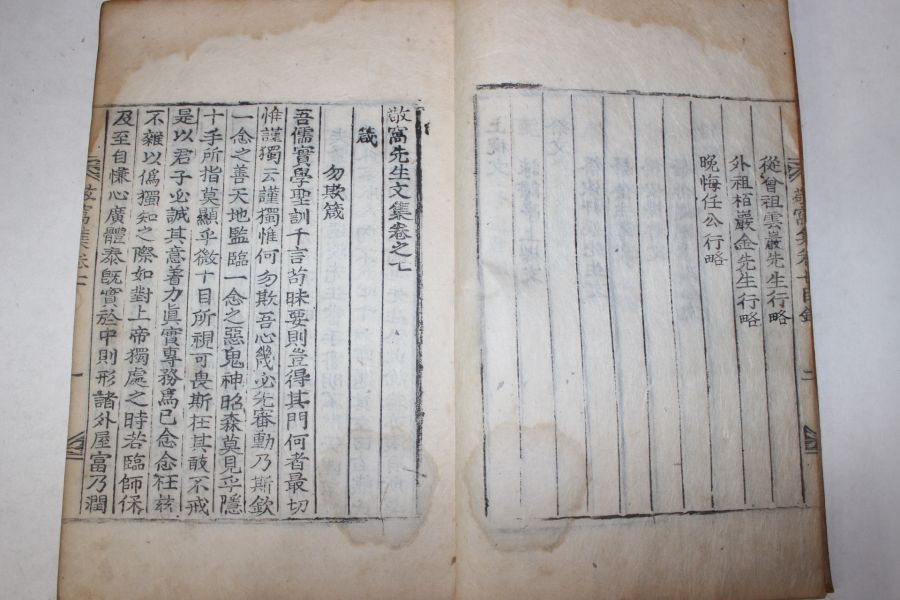 從曾祖雲巖先生行略
外祖栢巖金先生行略
晩悔任公行略
敬窩先生文集卷之七
箴
勿欺箴
吾儒實學聖訓千言苟昧要則豈得其門何者最切
惟謹獨云謹獨惟何勿欺吾心幾必先審動乃斯欽
一念之善天地監臨一念之惡鬼神昭森莫見乎隱
十手所指莫顯乎微十目所視可畏斯在其敢不戒
是以君子必誠其意着力眞實專務爲己念念在玆
不雜以僞獨知之際如對上帝獨處之時若臨師保
及至自慊心廣體泰旣實於中則形諸外屋富乃潤
敬窩集卷七
一